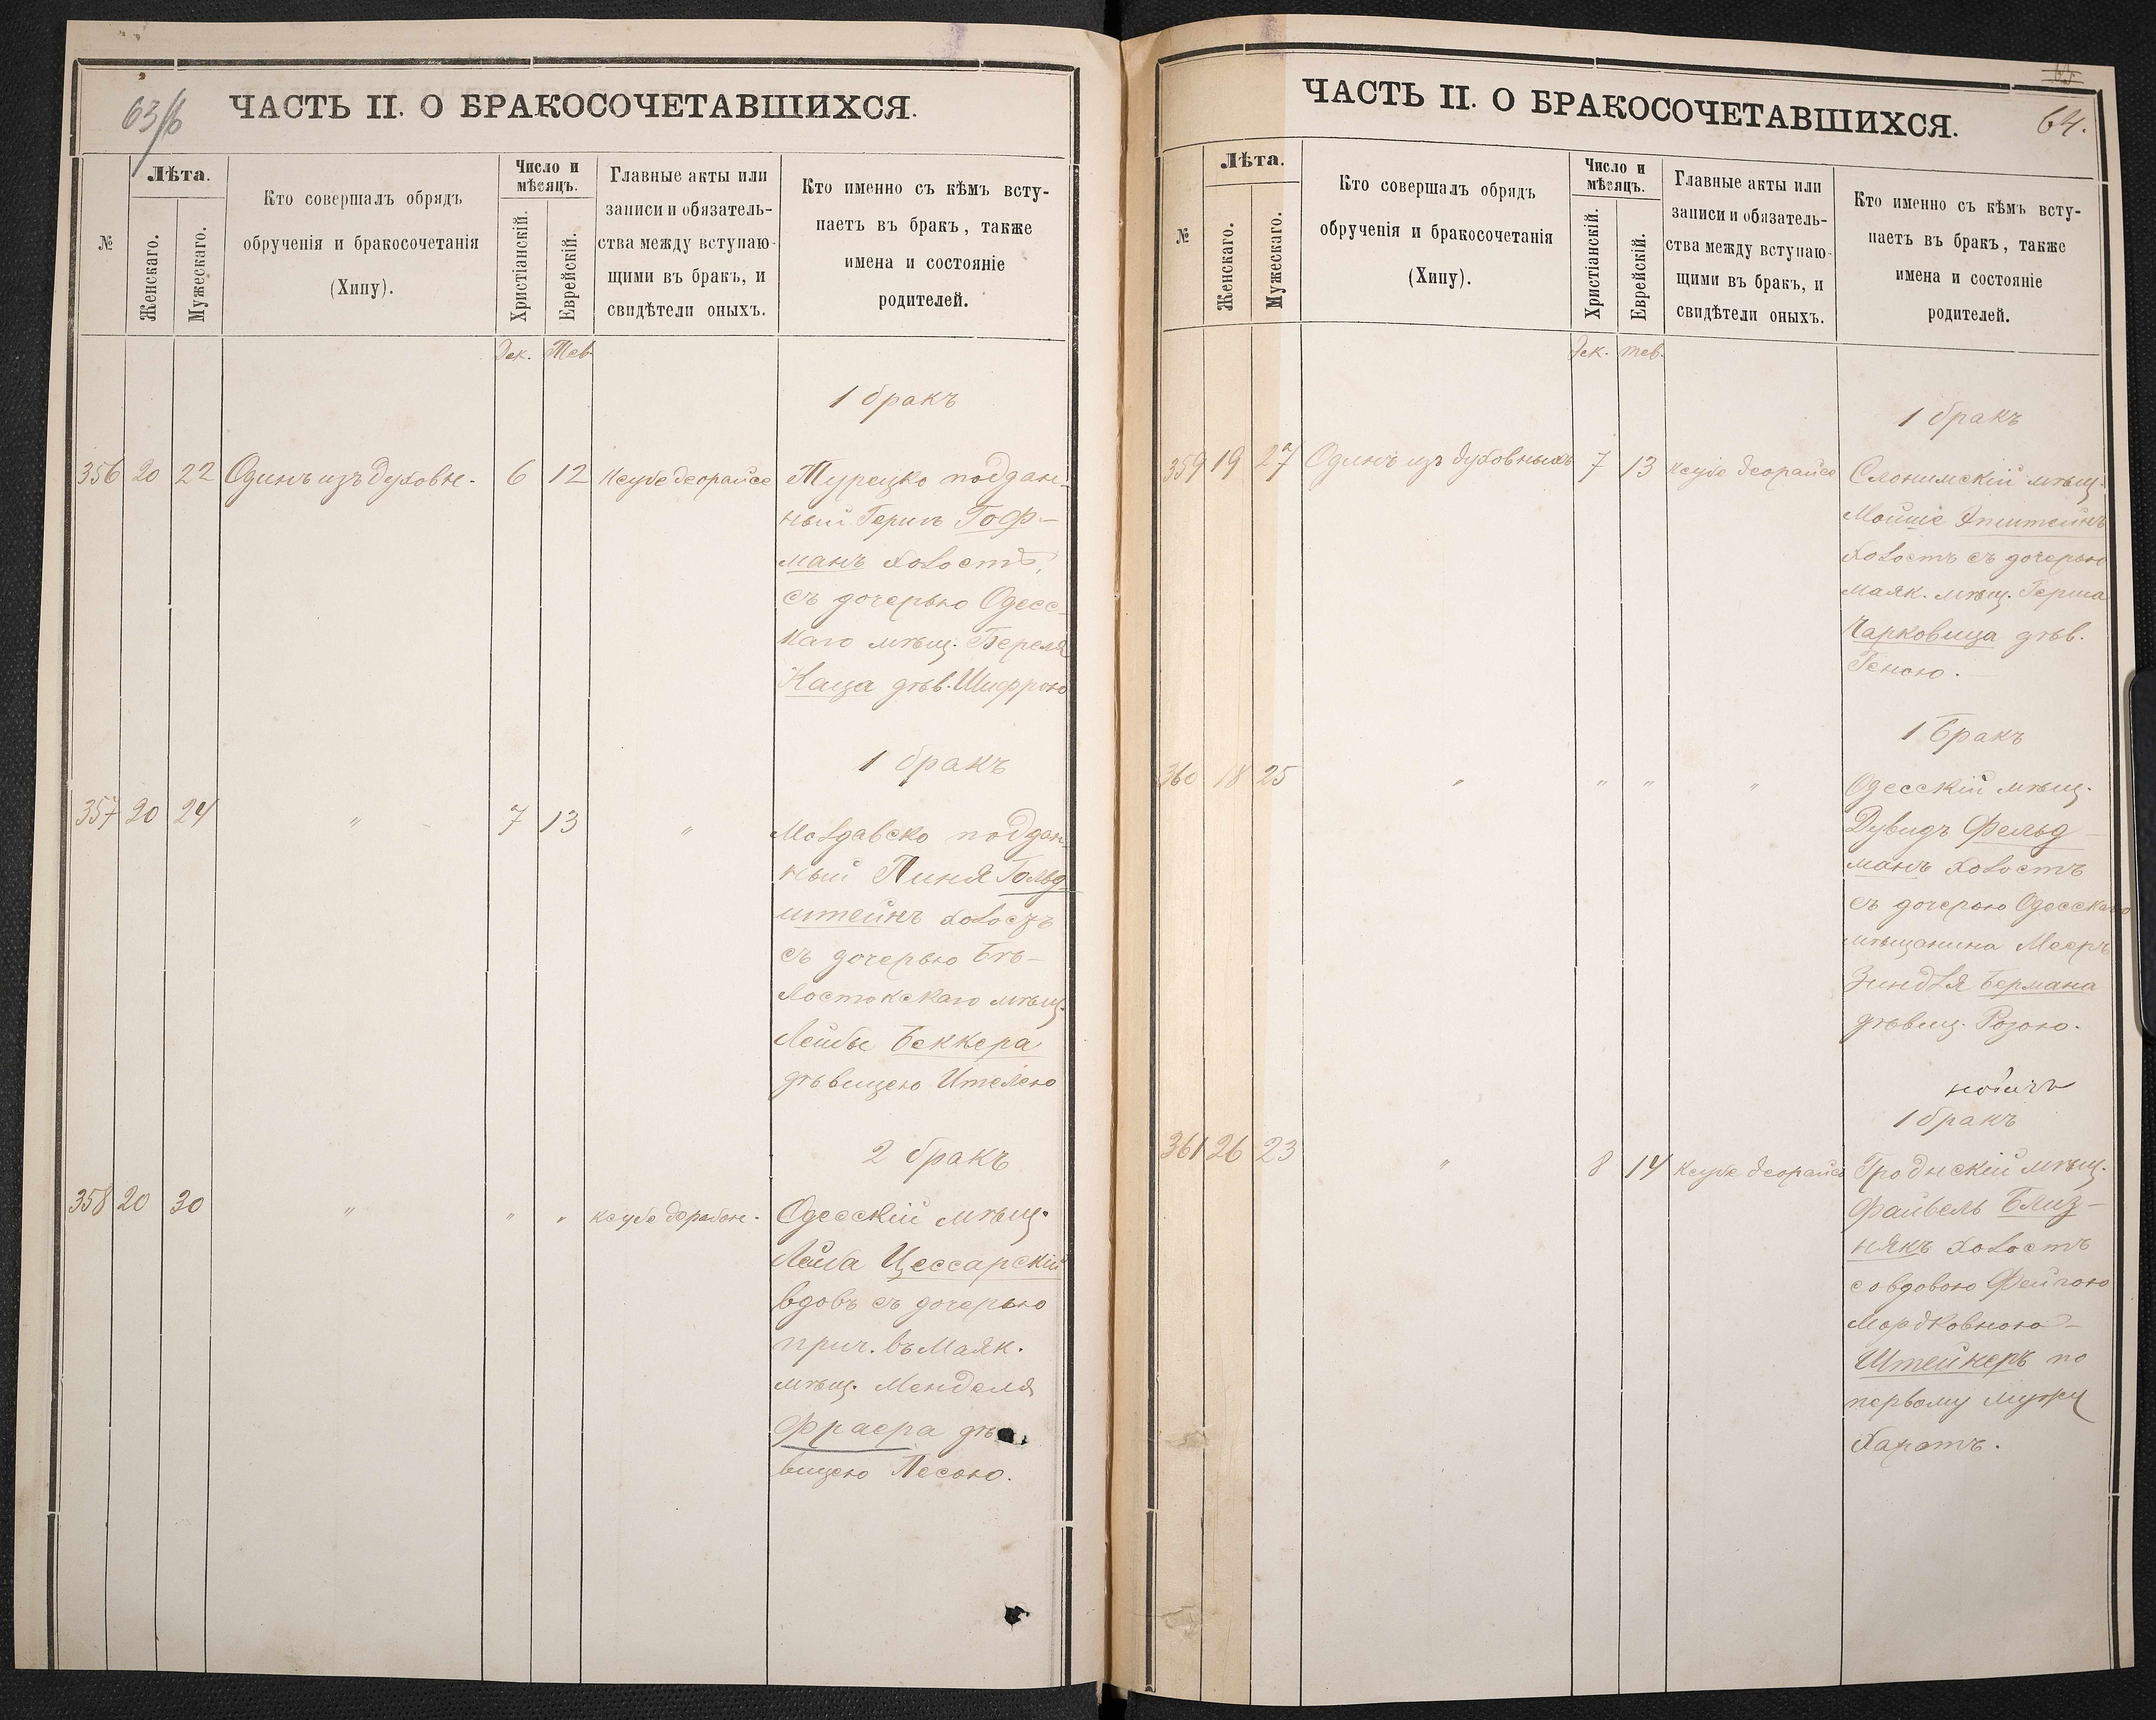 63/б
ЧАСТЬ II. О БРАКОСОЧЕТАВШИХСЯ.
№
Лѣта.
Женскаго.
Мужескаго.
Кто совершалъ обрядъ
обрученія и бракосочетанія
(Хипу).
Число и
мѣсяцъ.
Христіанскій.
Еврейскій.
Главные акты или
записи и обязатель-
ства между вступаю-
щими въ бракъ, и
свидѣтели оныхъ.
Кто именно съ кѣмъ всту-
паетъ въ бракъ, также
имена и состояніе
родителей.
Дек. Тев.
1 бракъ
356 20 22 Одинъ изъ духовн. 6 12 Ксубе деорайсе Турецко поддан-
ный Гершъ Гоф-
манъ холостъ,
съ дочерью Одесс-
каго мѣщ. Береля
Каца дѣв. Шифрою
1 бракъ
357 20 24 " 7 13 " Молдавско поддан-
ный Пиня Гольд
штейнъ холостъ
съ дочерью Бѣ-
лостокскаго мѣщ.
Лейбы Беккера
дѣвицею Ителею
2 бракъ
358 20 30 " " " ксубе дерабон. Одесскій мѣщ.
Лейба Цессарскій
вдовъ съ дочерью
прич. въ Маяк.
мѣщ. Менделя
Фраера дѣ
вицею Песею.
64.
ЧАСТЬ II. О БРАКОСОЧЕТАВШИХСЯ.
№
Лѣта.
Женскаго.
Мужескаго.
Кто совершалъ обрядъ
обрученія и бракосочетанія
(Хипу).
Число и
мѣсяцъ.
Христіанскій.
Еврейскій.
Главные акты или
записи и обязатель-
ства между вступаю-
щими въ бракъ, и
свидѣтели оныхъ.
Кто именно съ кѣмъ всту-
паетъ въ бракъ, также
имена и состояніе
родителей.
Дек. тев.
1 бракъ
359 19 27 Одинъ изъ духовныхъ 7 13 ксубе деорайсе Слонимскій мѣщ.
Мойше Эпштейнъ
холостъ съ дочерью
Маяк. мѣщ. Герша
Чарковица дѣв.
Генею.
1 Бракъ
360 18 25 " " " " Одесскій мѣщ.
Дувидъ Фельд-
манъ холостъ
съ дочерью Одесскаго
мѣщанина Мееръ
Зинделя Бермана
дѣвиц. Розою.
1 бракъ
361 26 23 " 8 14 Ксубе деорайсе Гроднскій мѣщ.
Файвель Близ-
някъ холостъ
со вдовою Фейгою
Мордковною
Штейнеръ по
первому мужу
Харатъ.